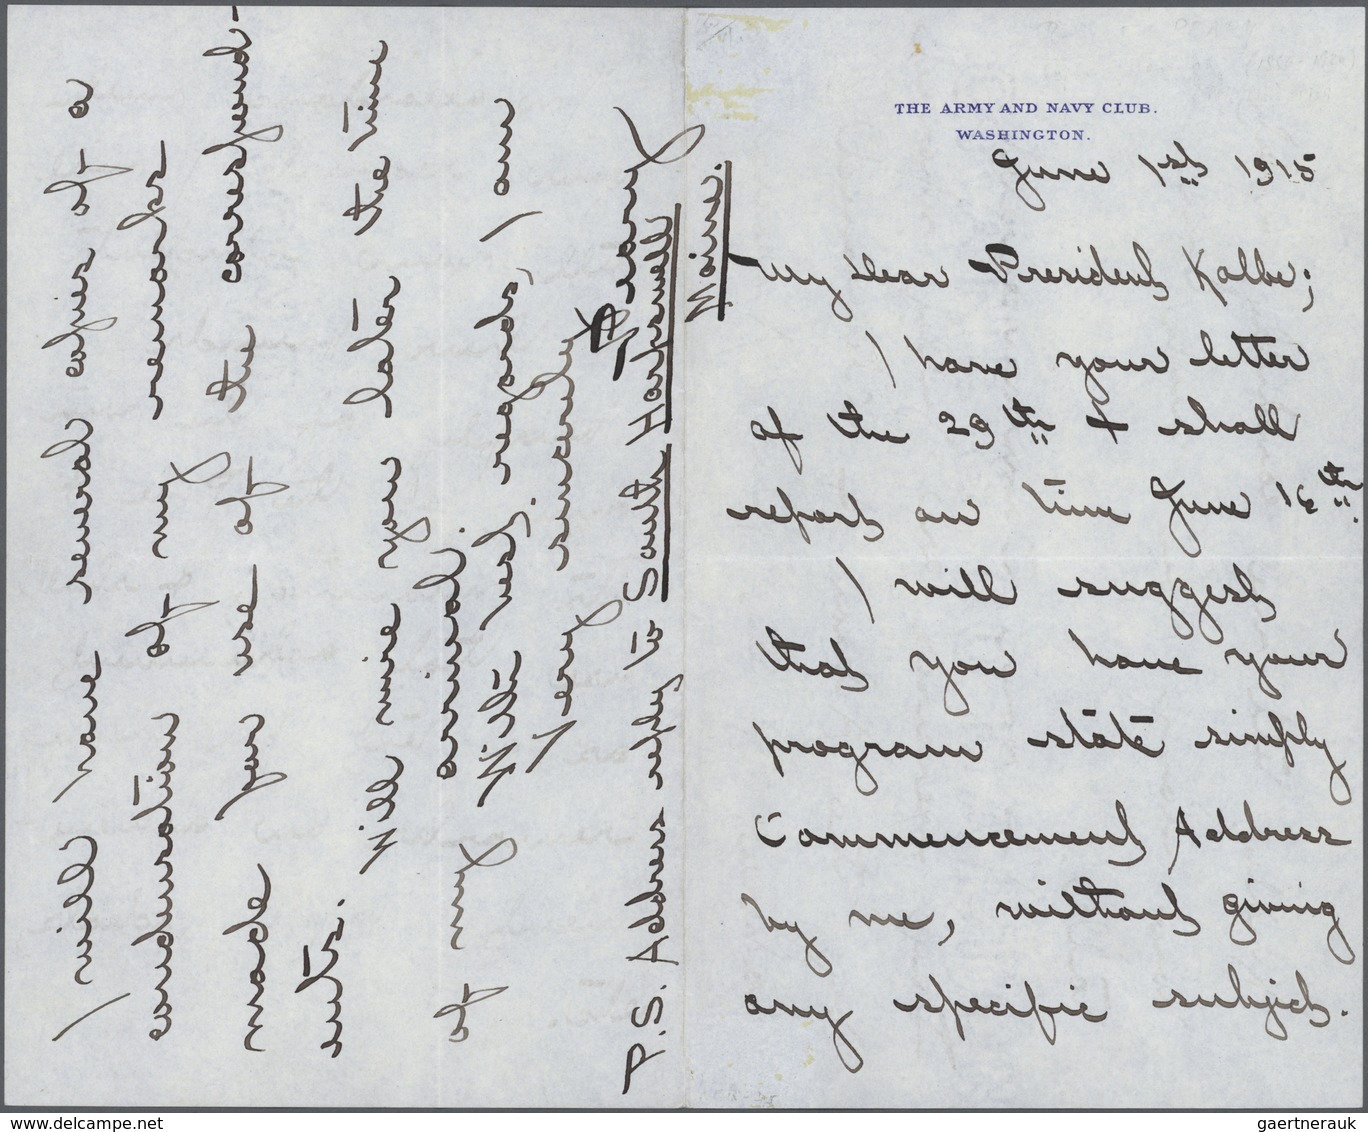 THE ARMY AND NAVY CLUB.
WASHINGTON.
June 1st 1915
My Dear President Kolbe;
I have your letter
of the 29th + shall
report on time June 16th.
I will suggest
that you have your
program state simply
Commencement Address
by me, without giving
any specific subject.
I will have several copies of a
condensation of my remarks
made for use of the correspond-
ents.
Will wire you later the time
of my arrival.
With best regards, I am
Very sincerely
Peary
P.S. Address reply to South Harpswell
Maine.
gaertnerauk